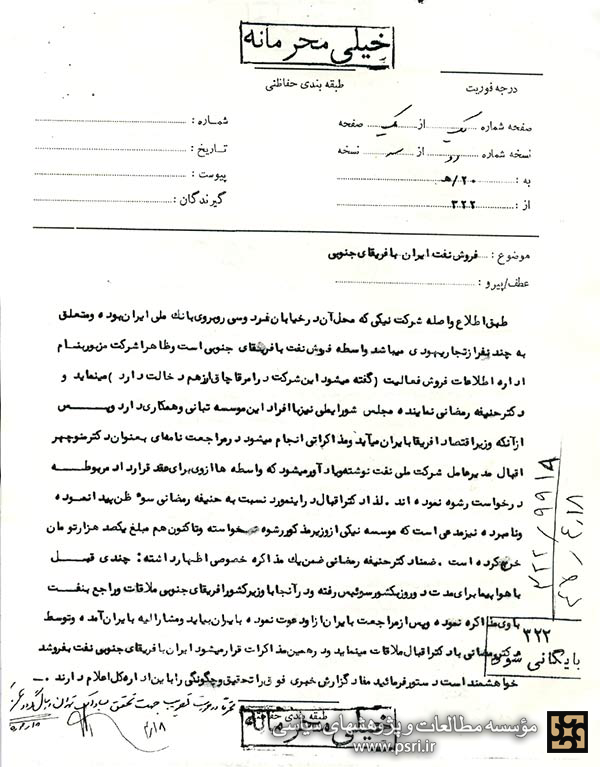 خیلی محرمانه
طبقه بندی حفاظتی
درجه فوریت
صفحه شماره یک از یک صفحه
نسخه شماره دو از سه نسخه
به : ۲۰/هـ
از : ۳۲۲
شماره :
تاریخ :
پیوست :
گیرندگان :
موضوع : فروش نفت ایران بافریقای جنوبی
عطف/پیرو :
طبق اطلاع واصله شرکت نیکی که محل آن در خیابان فردوسی روبروی بانک ملی ایران بوده و متعلق
به چند نفر از تجار یهودی میباشد واسطه فروش نفت بافریقای جنوبی است و ظاهرا شرکت مزبور بنام
اداره اطلاعات فروش فعالیت (گفته میشود این شرکت در امر قاچاق ارز هم دخالت دارد) مینماید و
دکتر حنیفه رمضانی نماینده مجلس شورایملی نیز با افراد این موسسه تبانی و همکاری دارد و پس
از آنکه وزیر اقتصاد افریقا بایران میآید و مذاکراتی انجام میشود در مراجعت نامه‌ای بعنوان دکتر منوچهر
اقبال مدیرعامل شرکت ملی نفت نوشته و یادآور میشود که واسطه ها از وی برای عقد قرارداد مربوطه
درخواست رشوه نموده اند . لذا دکتر اقبال در اینمورد نسبت به حنیفه رمضانی سوء ظن پیدا نموده
و نامبرده نیز مدعی است که موسسه نیکی از وزیر مذکور رشوه نخواسته و تاکنون هم مبلغ یکصد هزار تومان
خرج کرده است . ضمنا دکتر حنیفه رمضانی ضمن یک مذاکره خصوصی اظهار داشته : چندی قبل
با هواپیما برای مدت دو روز بکشور سوئیس رفته و در آنجا با وزیر کشور افریقای جنوبی ملاقات و راجع بنفت
با وی مذاکره نموده و پس از مراجعت بایران از او دعوت نموده بایران بیاید و مشارالیه بایران آمده و توسط
دکتر رمضانی با دکتر اقبال ملاقات مینماید و در همین مذاکرات قرار میشود ایران بافریقای جنوبی نفت بفروشد
خواهشمند است دستور فرمائید مفاد گزارش خبری فوق را تحقیق و چگونگی را باین اداره کل اعلام دارند .
۳۲۲
بایگانی شود
طبقه بندی حفاظتی
خیلی محرمانه
مؤسسه مطالعات و پژوهشهای سیاسی
www.psri.ir